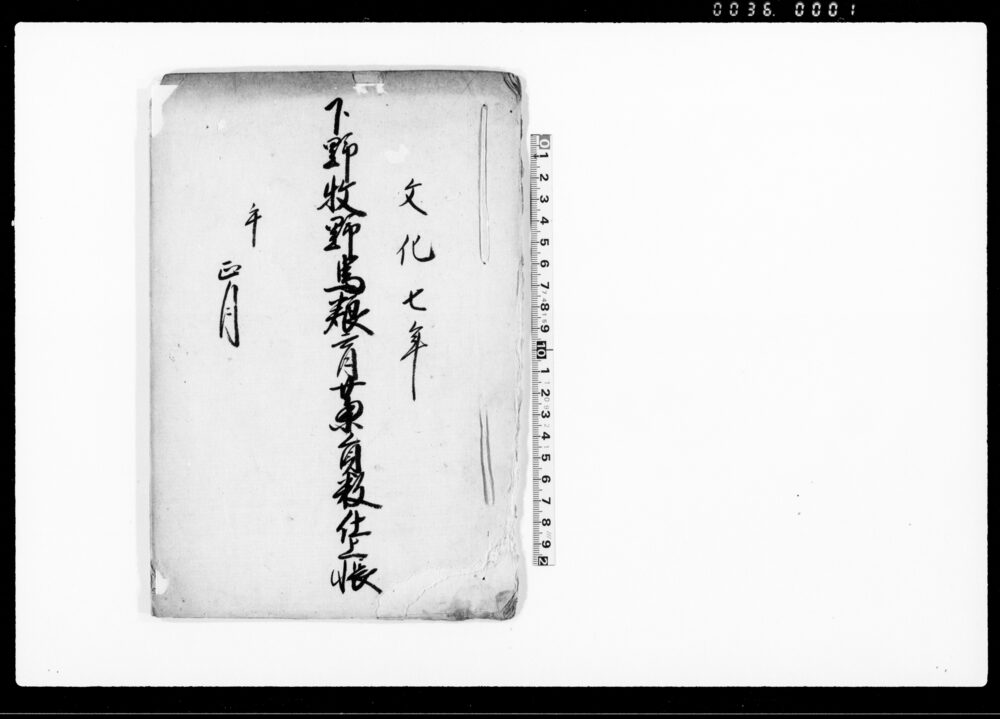 0036 0001
文化七年
下野牧野馬粮青藁員数仕上帳
午
正月
0 1 2 3 4 5 6 7 8 9 10 1 2 3 4 5 6 7 8 9 2